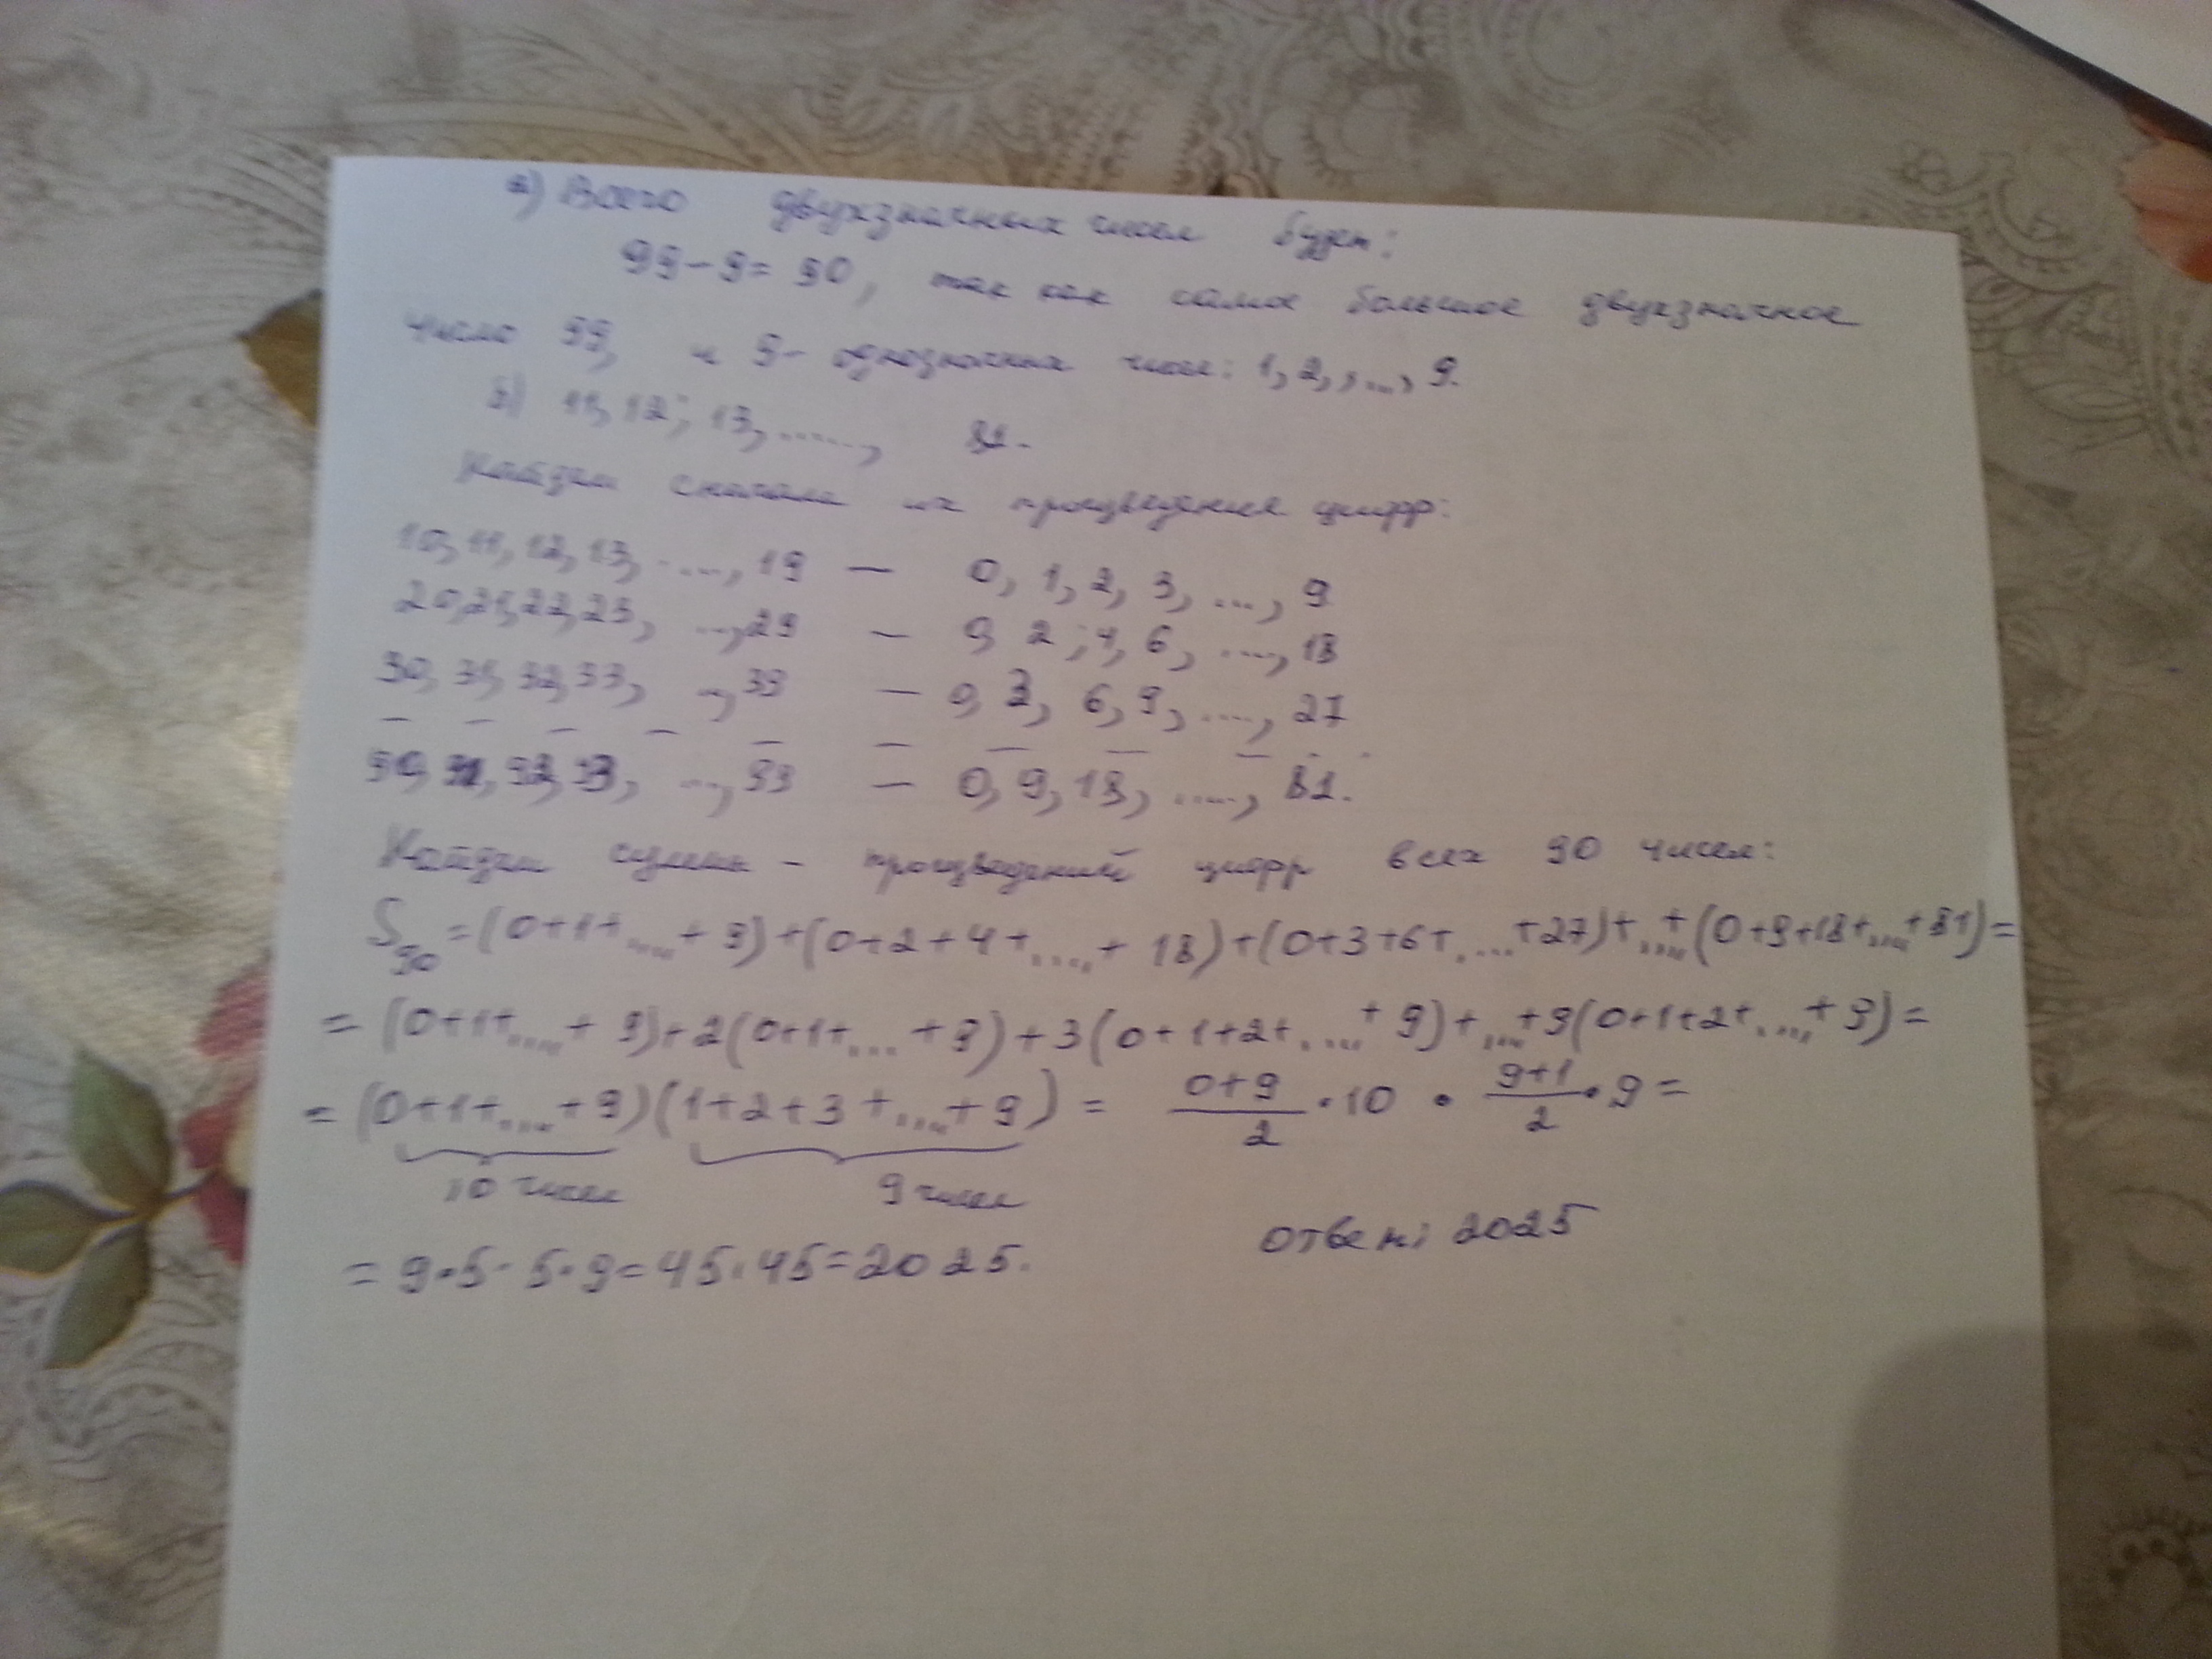 а) Всего двухзначных чисел будет:
99-9=90, так как самое большое двухзначное
число 99, и 9- однозначных чисел: 1, 2, , ..., 9.
б) 11, 12; 13, ......, 81.
Найдем сначала их произведения цифр:
10, 11, 12, 13, ...., 19 — 0, 1, 2, 3, ..., 9
20, 21, 22, 23, ..., 29 — 0, 2; 4, 6, ...., 18
30, 31, 32, 33, .., 39 — 0, 3, 6, 9, ...., 27
90, 91, 92, 93, ..., 99 — 0, 9, 18, ....., 81.
Найдем сумму - произведений цифр всех 90 чисел:
S₉₀=(0+1+....+9)+(0+2+4+....+18)+(0+3+6+....+27)+...+(0+9+18+...+81)=
=(0+1+....+9)+2(0+1+....+9)+3(0+1+2+....+9)+...+9(0+1+2+....+9)=
=(0+1+....+9)(1+2+3+....+9)= (0+9)/2·10 · (9+1)/2·9=
10 чисел 9 чисел
=9·5·5·9=45·45=2025. ответ: 2025